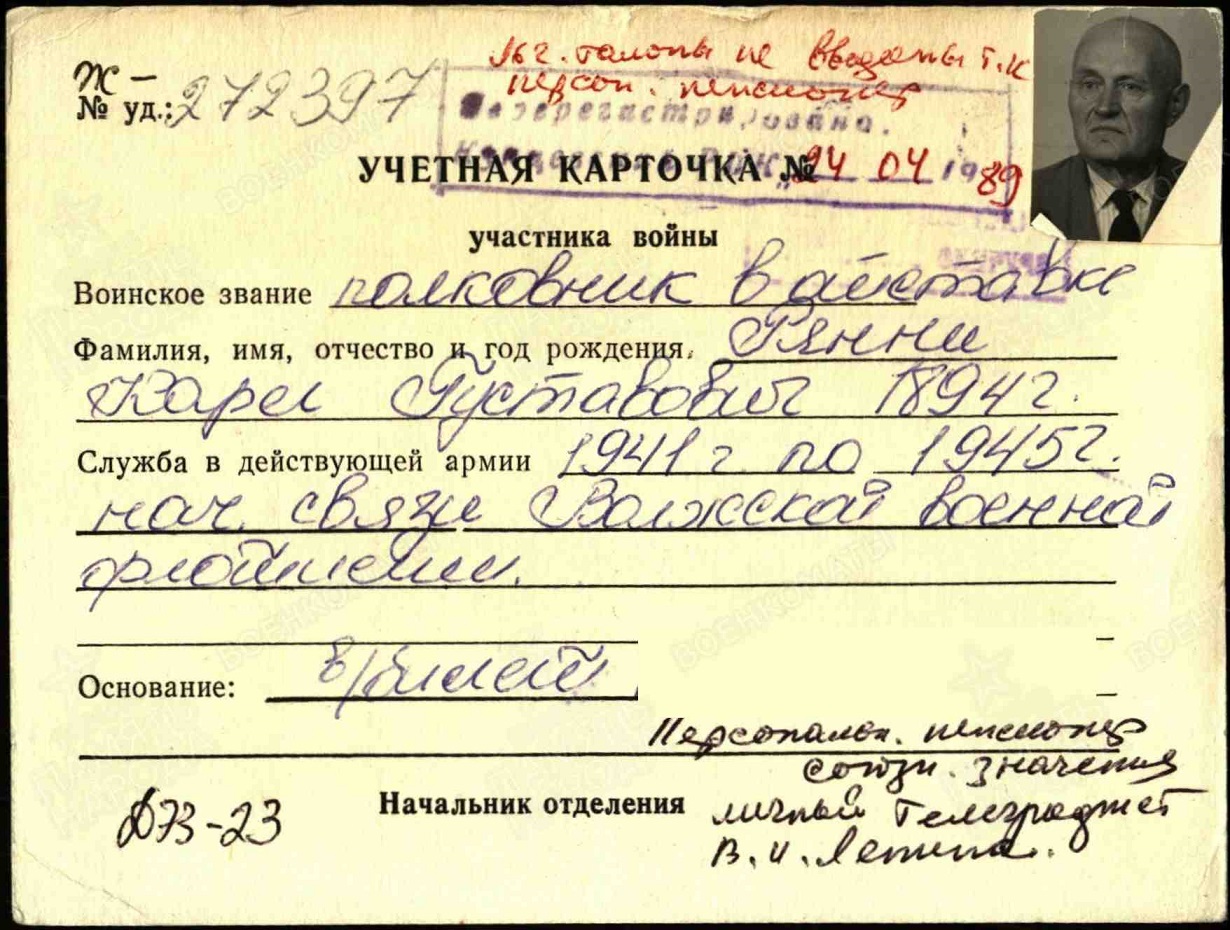 Ж –
№ уд.: 272397
льг. талоны не введены т.к
персон. пенсионер
Перерегистрирована.
24 04 1989
УЧЕТНАЯ КАРТОЧКА №
участника войны
Воинское звание полковник в отставке
Фамилия, имя, отчество и год рождения. Рянни
Карел Густавович 1894 г.
Служба в действующей армии 1941 г по 1945 г.
нач. связи Волжской военной
флотилии.
Основание: в/билет
Персональн. пенсионер
союзн. значения
Начальник отделения личный телеграфист
В. И. Ленина.